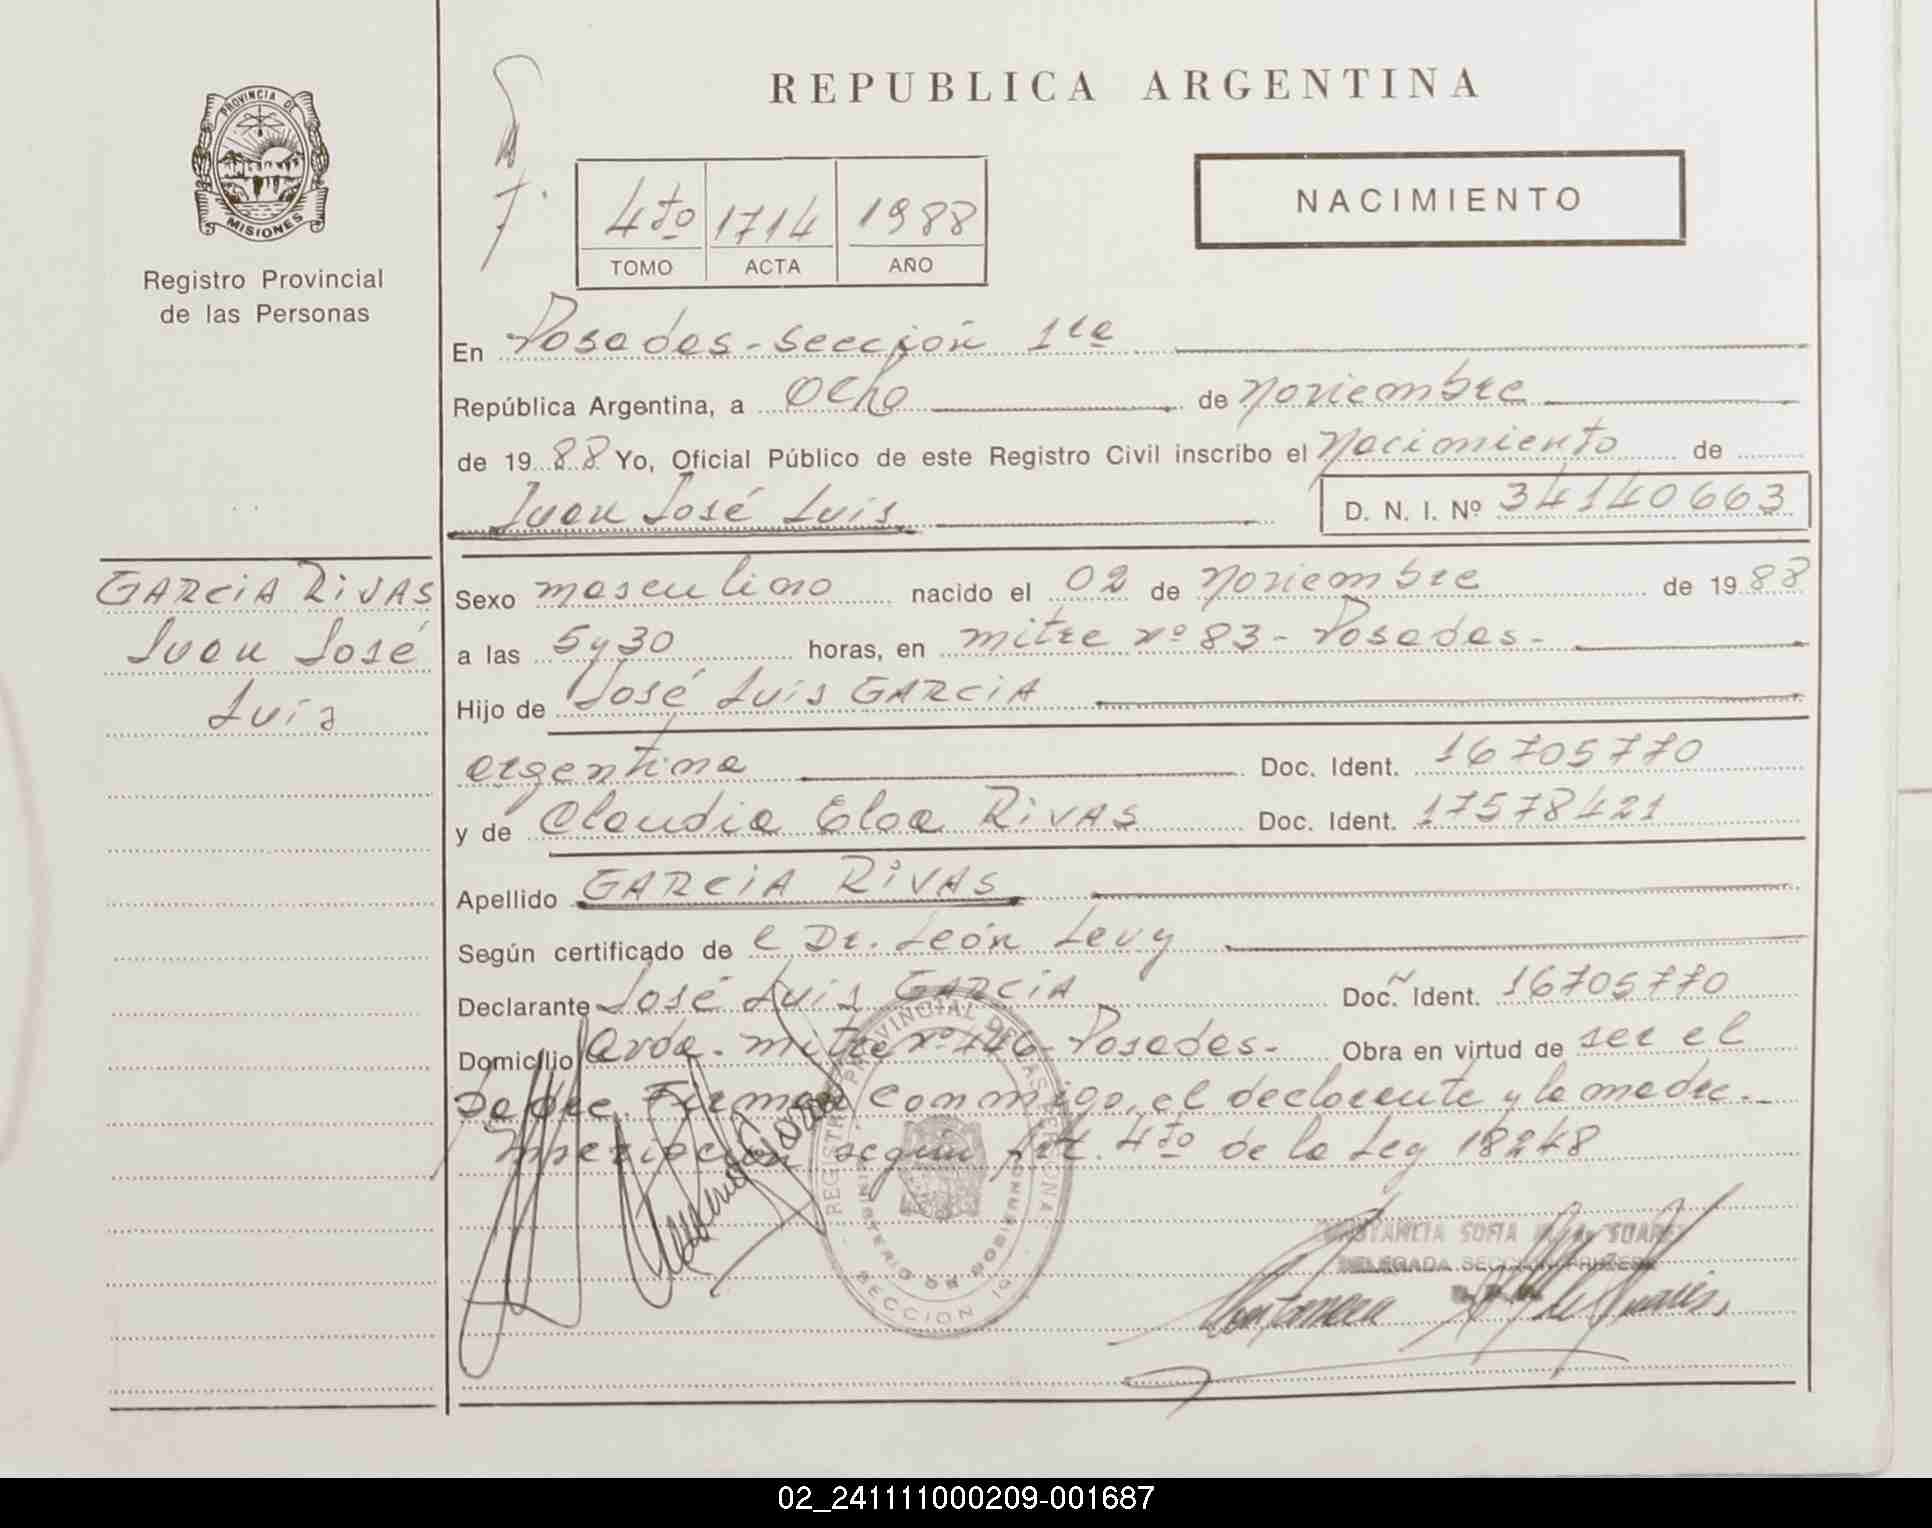 PROVINCIA DE
MISIONES
Registro Provincial
de las Personas
GARCIA RIVAS
Juan José
Luis
REPUBLICA ARGENTINA
NACIMIENTO
4to 1714 1988
TOMO ACTA AÑO
En Posadas - sección 1ra
República Argentina, a Ocho de noviembre
de 1988 Yo, Oficial Público de este Registro Civil inscribo el nacimiento de
Juan José Luis D. N. I. Nº 34140663
Sexo masculino nacido el 02 de noviembre de 1988
a las 5 y 30 horas, en mitre nº 83 - Posadas -
Hijo de José Luis GARCIA
argentina Doc. Ident. 16705770
y de Claudia Eloa RIVAS Doc. Ident. 17578421
Apellido GARCIA RIVAS
Según certificado de l Dr. León Levy
Declarante José Luis GARCIA Doc. Ident. 16705770
Domicilio Avda. mitre nº 446 - Posadas - Obra en virtud de ser el
padre. Firman conmigo, el declarante y la madre. -
Inscripción según Art. 4to de la Ley 18248
REGISTRO PROVINCIAL DE LAS PERSONAS
MINISTERIO DE GOBIERNO
SECCION 1a
CONSTANCIA SOFIA SUAREZ
DELEGADA SECCION PRIMERA
02_241111000209-001687